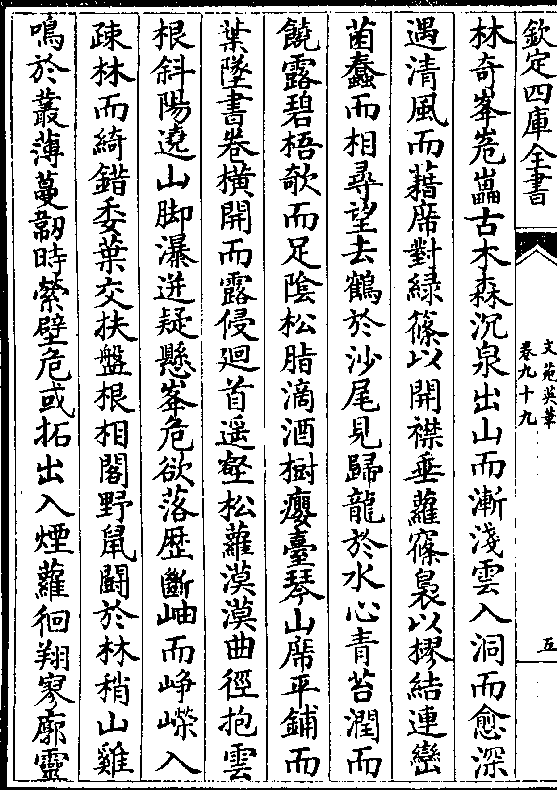 欽定四庫全書
文苑英華
卷九十九
五
林奇峯危巂古木森沉泉出山而漸淺雲入洞而愈深
遇清風而藉席對緑篠以開襟垂蘿窱裊以樛結連巒
菌蠢而相尋望去鶴於沙尾見歸龍於水心青苔潤而
饒露碧梧欹而足陰松脂滴酒樹癭臺琴山席平鋪而
葉墜書卷横開而露侵廻首遥壑松蘿漠漠曲徑抱雲
根斜陽遶山脚瀑迸疑懸峯危欲落歴斷岫而崢嶸入
疎林而綺錯委葉交扶盤根相閣野鼠鬭於林稍山雞
鳴於叢薄蔓韌時縈壁危或拓出入煙蘿徊翔寥廓靈